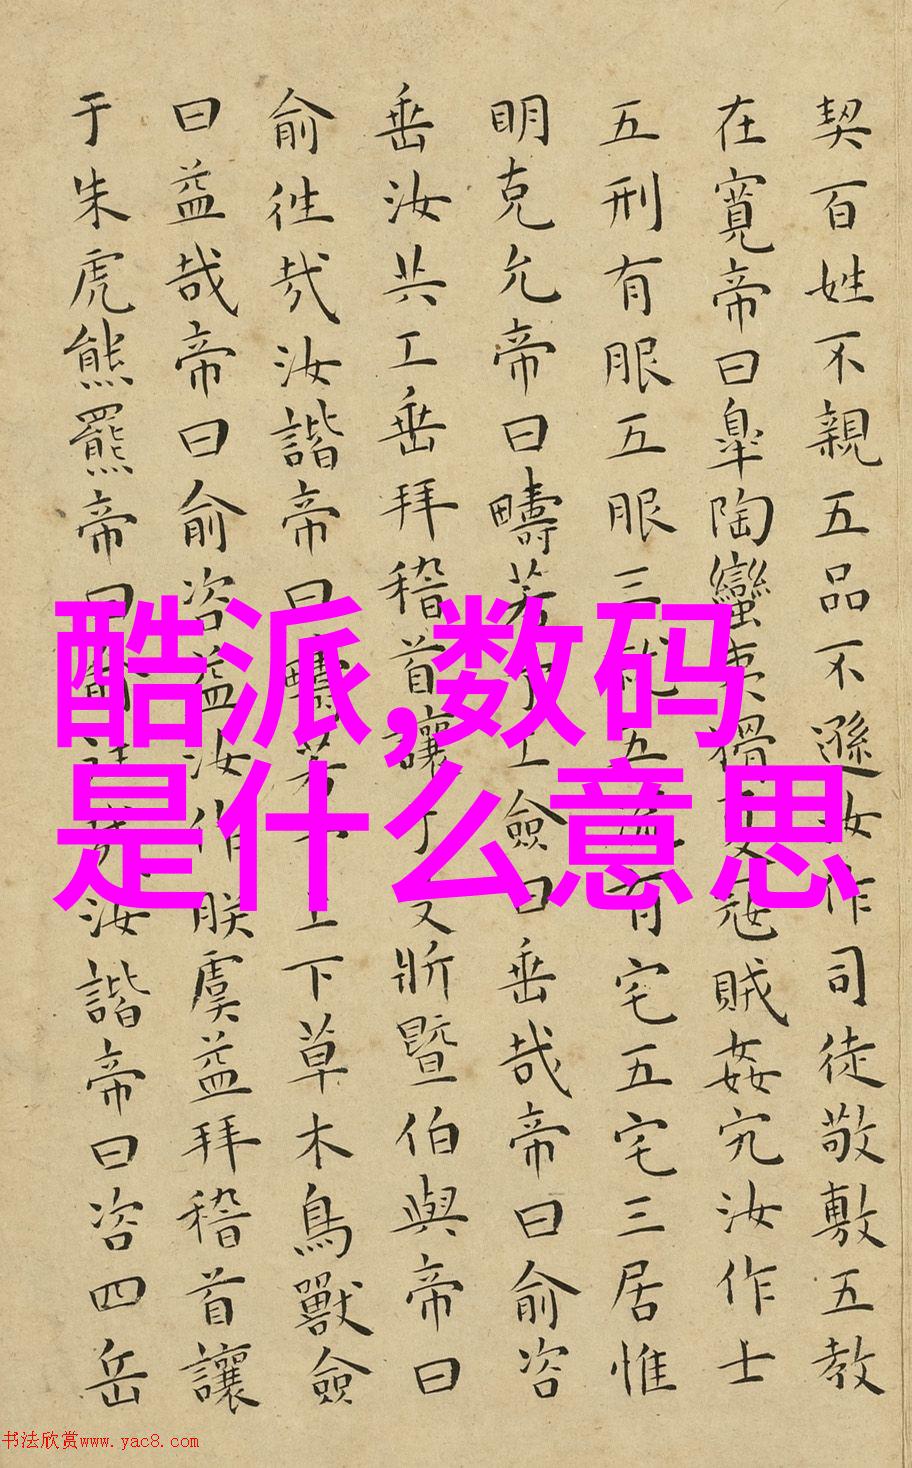 契百姓不親五品不遜汝作司徒敬敷五教
在寬帝曰皐陶蠻夷猾夏寇賊姦宄汝作士
五刑有服五服三就五流有宅五宅三居惟
明克允帝曰疇若予工僉曰垂哉帝曰俞咨
垂汝共工垂拜稽首讓于殳斨暨伯與帝曰
俞往哉汝諧帝曰疇若予上下草木鳥獸僉
曰益哉帝曰俞咨益汝作朕虞益拜稽首讓
于朱虎熊羆帝曰俞往哉汝諧帝曰咨四岳
酷派,数码
是什么意思
书法欣赏www.yac8.com